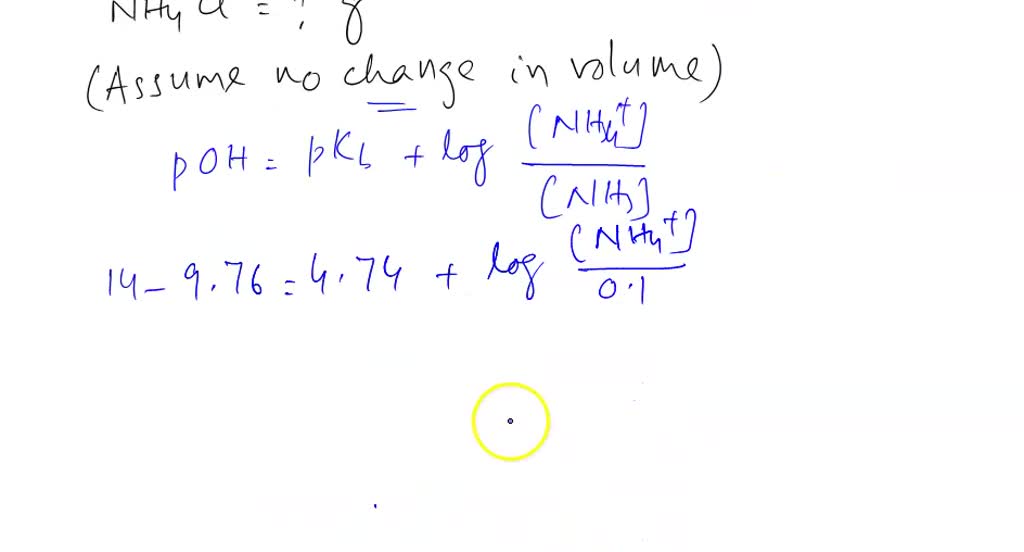 NH4Cl = ? g
(Assume no change in volume)
pOH = pKb + log [NH4+]
[NH3]
14 - 9.76 = 4.74 + log [NH4+]
0.1